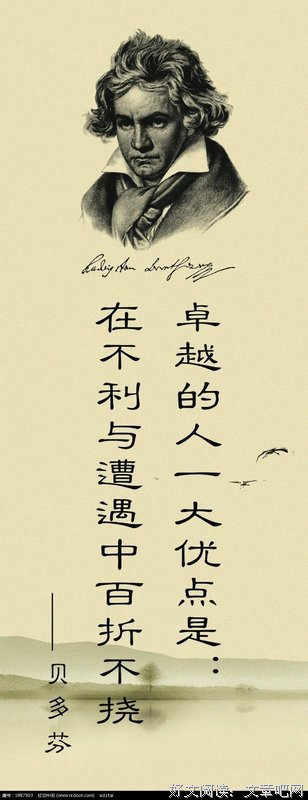 卓越的人一大优点是：
在不利与遭遇中百折不挠
——贝多芬
好文阅读：文章吧网